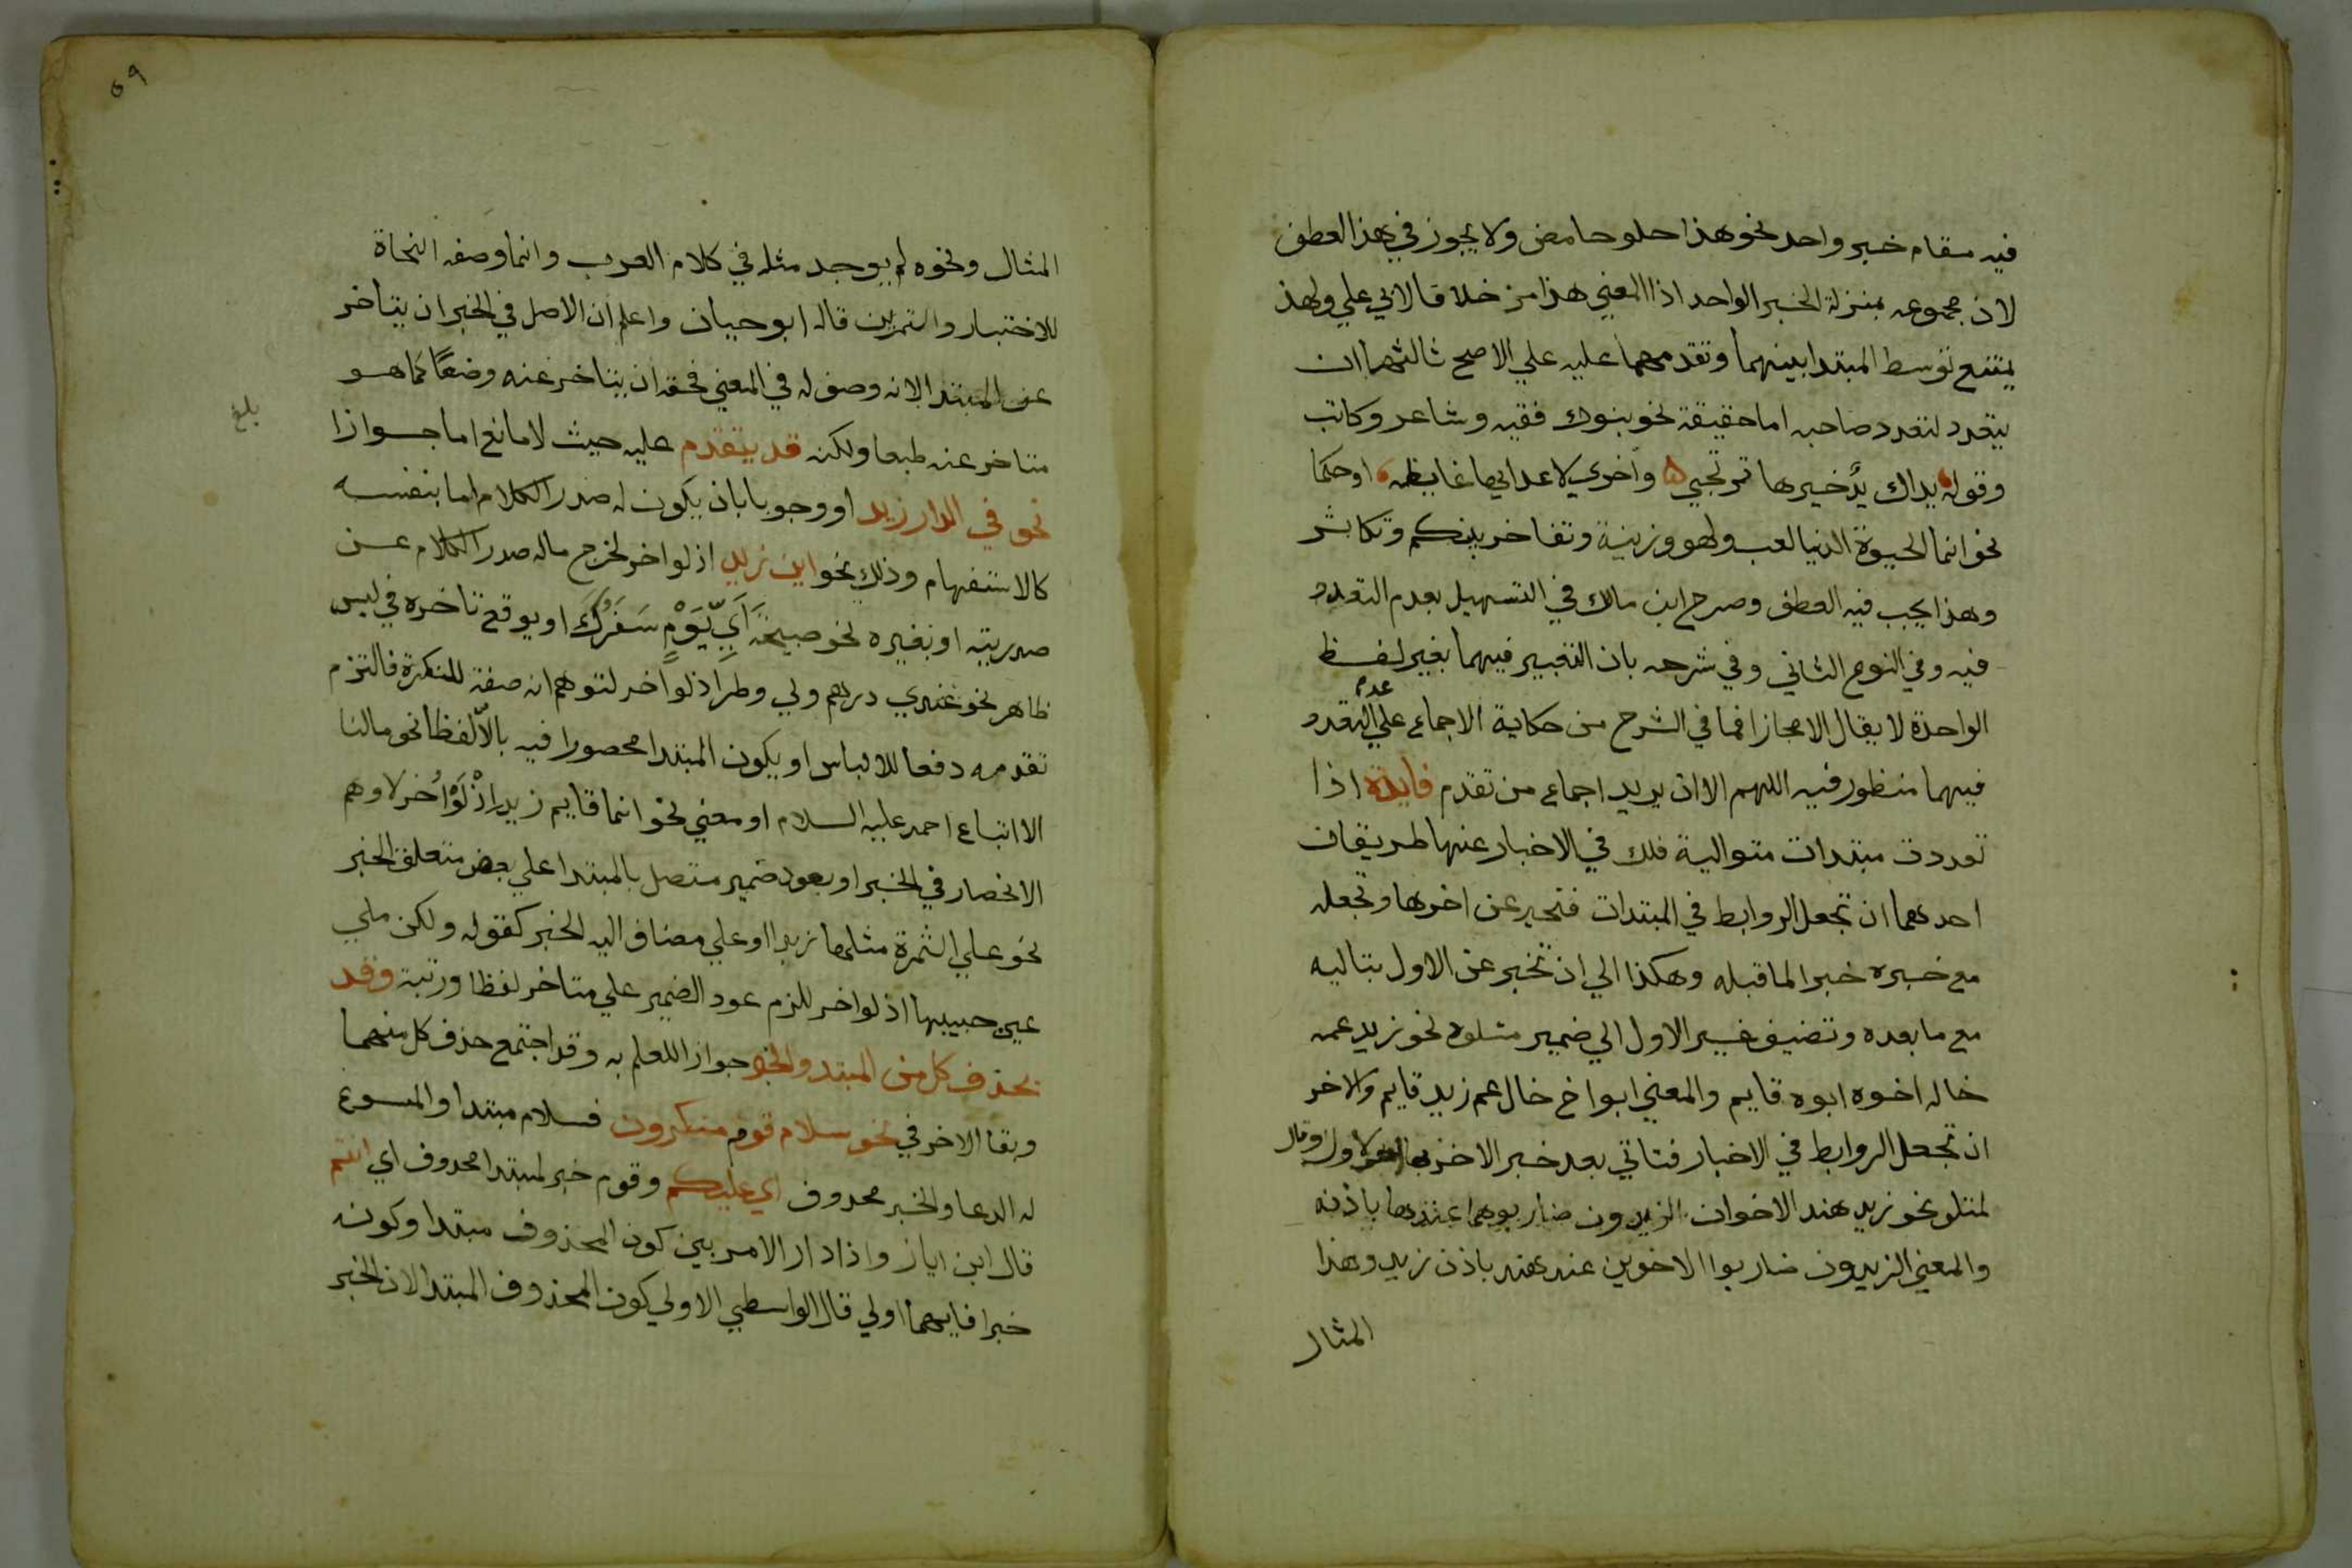 فيه مقام خبر واحد نحو هذا حلو حامض ولا يجوز في هذا العطف
لان مجموعه بمنزلة الخبر الواحد اذا المعني هذا مز خلافا لابي علي ولهذ
يمتنع توسط المبتدا بينهما وتقدمهما عليه علي الاصح ثالثها ان
يتعدد لتعدد صاحبه اما حقيقة نحو بنوك فقيه وشاعر وكاتب
وقوله يداك يد خيرها ترتجي واخري لاعدايها غايظه او حكما
نحو انما الحيوة الدنيا لعب ولهو وزينة وتفاخر بينكم وتكاثر
وهذا يجب فيه العطف وصرح ابن مالك في التسهيل بعدم التعدد
فيه وفي النوع الثاني وفي شرحه بان التعبير فيهما بغير لفظ
الواحدة لا يقال الا مجازا فما في الشرح من حكاية الاجماع علي عدم التعدد
فيهما منظور فيه اللهم الا ان يريد اجماع من تقدم فايدة اذا
تعددت مبتدات متوالية فلك في الاخبار عنها طريقان
احدهما ان تجعل الروابط في المبتدات فتخبر عن اخرها وتجعله
مع خبره خبرا لما قبله وهكذا الي ان تخبر عن الاول بتاليه
مع ما بعده وتضيف غير الاول الي ضمير متلوه نحو زيد عمه
خاله اخوه ابوه قايم والمعني ابو اخ خال عم زيد قايم والاخر
ان تجعل الروابط في الاخبار فتاتي بعد خبر الاخر
لمتلو نحو زيد هند الاخوان الزيدون ضاربوهما عندها باذنه
والمعني الزيدون ضاربوا الاخوين عند هند باذن زيد وهذا
المثال
٥٩
المثال ونحوه لم يوجد مثله في كلام العرب وانما وصفه النحاة
للاختبار والتمرين قاله ابو حيان واعلم ان الاصل في الخبر ان يتاخر
عن المبتدا لانه وصف له في المعني فحقه ان يتاخر عنه وضعا كما هو
متاخر عنه طبعا ولكنه قد يتقدم عليه حيث لا مانع اما جوازا
بلغ
نحو في الدار زيد او وجوبا بان يكون له صدر الكلام اما بنفسه
كالاستفهام وذلك نحو اين زيد اذ لو اخر لخرج ماله صدر الكلام عن
صدريته او بغيره نحو صبيحة اي يوم سفرك او يوقع تاخره في لبس
ظاهر نحو عندي درهم ولي وطر اذ لو اخر لتوهم انه صفة للنكرة فالتزم
تقدمه دفعا للالباس او يكون المبتدا محصورا فيه بالا لفظا نحو مالنا
الا اتباع احمد عليه السلام او معني نحو انما قايم زيد اذ لو اخر لاوهم
الانحصار في الخبر او يعود ضمير متصل بالمبتدا علي بعض متعلق الخبر
نحو علي الثمرة مثلها زيدا او علي مضاف اليه الخبر كقوله ولكن ملي
عين حبيبها اذ لو اخر للزم عود الضمير علي متاخر لفظا ورتبة وقد
يحذف كل من المبتدا والخبر جوازا للعلم به وقد اجتمع حذف كل منهما
وبقا الاخر في نحو سلام قوم منكرون فسلام مبتدا والمسوغ
له الدعا والخبر محدوف اي عليكم وقوم خبر لمبتدا محدوف اي انتم
قال ابن اياز واذا دار الامر بين كون المحذوف مبتدا وكونه
خبرا فايهما اولي قال الواسطي الاولي كون المحذوف المبتدا لان الخبر